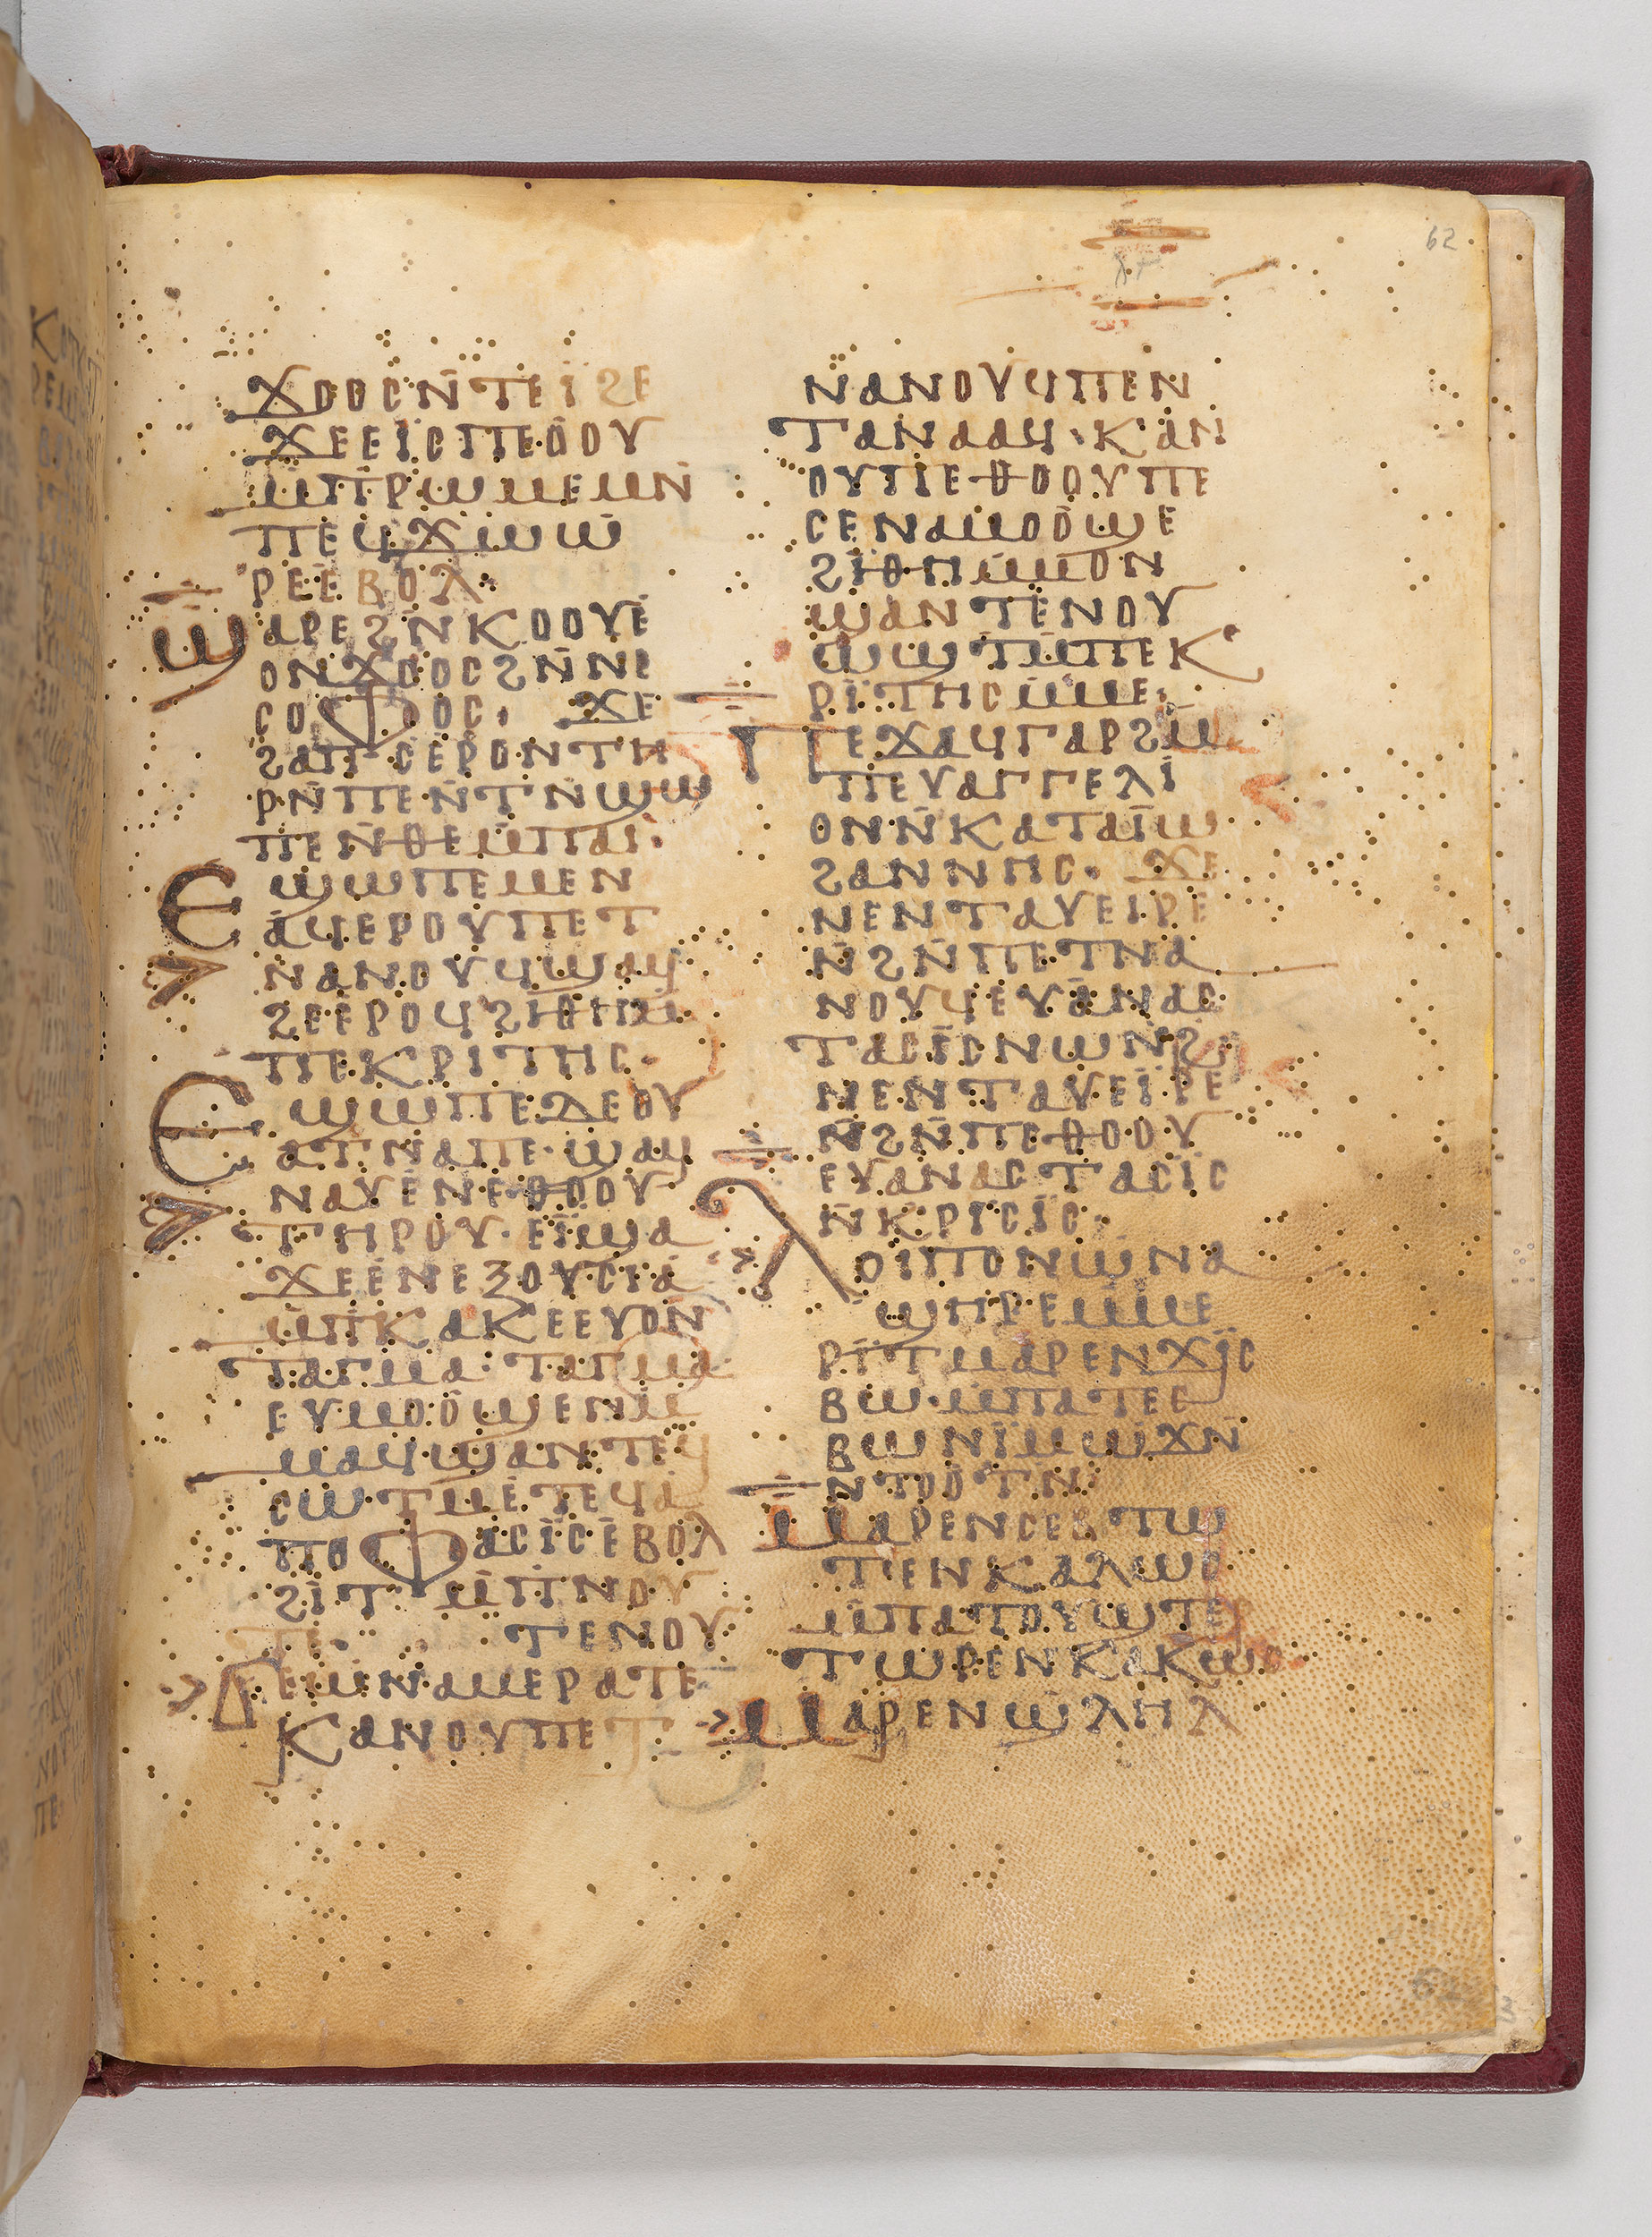 62
ϫⲟⲟⲥ ⲛ̄ⲧⲉⲓ̈ϩⲉ
ϫⲉ ⲉⲓⲥ ⲡⲉϩⲟⲟⲩ
ⲙ̄ⲡⲣⲱⲙⲉ ⲙⲛ̄
ⲡⲉϥϫⲱⲱ
ⲣⲉ ⲉⲃⲟⲗ
ϣⲁⲣⲉ ϩⲛ̄ⲕⲟⲟⲩⲉ
ⲟⲛ ϫⲟⲟⲥ ϩⲛ̄ ⲛⲓ
ⲥⲟⲫⲟⲥ· ϫⲉ
ϩⲁⲡⲥ ⲉⲣⲟⲛ ⲧⲏ
ⲣⲛ̄ ⲡⲉ ⲛ̄ⲧⲛ̄ϣⲱ
ⲡⲉ ⲛ̄ⲑⲉ ⲙ̄ⲡⲁⲓ·
Ⲉϣⲱⲡⲉ ⲙⲉⲛ
ⲁϥⲉⲣ ⲟⲩⲡⲉⲧ
ⲛⲁⲛⲟⲩϥ ϣⲁϥ
ϩⲉ ⲉⲣⲟϥ ϩⲓⲑⲏ ⲙ̄
ⲡⲉⲕⲣⲓⲧⲏⲥ·
Ⲉϣⲱⲡⲉ ⲇⲉ ⲟⲩ
ⲁⲧⲛⲁ ⲡⲉ· ϣⲁϥ
ⲛⲁⲩ ⲉⲛⲉⲑⲟⲟⲩ
ⲧⲏⲣⲟⲩ· ⲉⲓ̈ϣⲁ
ϫⲉ ⲉⲛⲉⲝⲟⲩⲥⲓⲁ
ⲙ̄ⲡⲕⲁⲕⲉ ⲉⲩⲟⲛ
ⲧⲁⲅⲙⲁ· ⲧⲁⲅⲙⲁ·
ⲉⲩⲙⲟⲟϣⲉ ⲛⲙ̄
ⲙⲁϥ ϣⲁⲛⲧⲉϥ
ⲥⲱⲧⲙ ⲉⲧⲉϥⲁ
ⲡⲟⲫⲁⲥⲓⲥ ⲉⲃⲟⲗ
ϩⲓⲧⲙ̄ ⲡⲛⲟⲩ
ⲧⲉ· ⲧⲉⲛⲟⲩ
ⲇⲉ ⲱ̄ ⲛⲁⲙⲉⲣⲁⲧⲉ·
ⲕⲁⲛ ⲟⲩⲡⲉⲧ
ⲛⲁⲛⲟⲩϥ ⲡⲉⲛ
ⲧⲁⲛⲁⲁϥ· ⲕⲁⲛ
ⲟⲩⲡⲉⲑⲟⲟⲩ ⲡⲉ
ⲥⲉⲛⲁⲙⲟⲟϣⲉ
ϩⲓⲑⲏ ⲙ̄ⲙⲟⲛ
ϣⲁⲛⲧⲉⲛⲟⲩ
ⲱϣⲧ ⲙ̄ⲡⲉⲕ
ⲣⲓⲧⲏⲥ ⲙ̄ⲙⲉ·
Ⲡⲉϫⲁϥ ⲅⲁⲣ ϩⲙ̄
ⲡⲉⲩⲁⲅⲅⲉⲗⲓ
ⲟⲛ ⲛ̄ⲕⲁⲧⲁ ⲓ̈ⲱ
ϩⲁⲛⲛⲏⲥ· ϫⲉ
ⲛⲉⲛⲧⲁⲩⲉⲓⲣⲉ
ⲛ̄ϩⲛ̄ⲡⲉⲧⲛⲁ
ⲛⲟⲩϥ ⲉⲩⲁⲛⲁⲥ
ⲧⲁⲥⲓⲥ ⲛⲱⲛϩ
ⲛⲉⲛⲧⲁⲩⲉⲓⲣⲉ
ⲛ̄ϩⲛ̄ⲡⲉⲑⲟⲟⲩ
ⲉⲩⲁⲛⲁⲥⲧⲁⲥⲓⲥ
ⲛ̄ⲕⲣⲓⲥⲓⲥ·
Ⲗⲟⲓⲡⲟⲛ ⲱ̄ ⲛⲁ
ϣⲏⲣⲉ ⲙ̄ⲙⲉ
ⲣⲓⲧ ⲙⲁⲣⲉⲛϫⲓⲥ
ⲃⲱ· ⲙ̄ⲡⲁⲧⲉⲥ
ⲃⲱ ⲛⲓⲙ ⲱϫⲛ̄
ⲛⲧⲟⲟⲧⲛ·
Ⲙⲁⲣⲉⲛⲥⲉⲃⲧⲱ
ⲧ ⲉⲛⲕⲁⲗⲱⲥ
ⲙ̄ⲡⲁⲧⲟⲩϣⲧⲉⲣ
ⲧⲱⲣⲉⲛ ⲕⲁⲕⲱⲥ·
Ⲙⲁⲣⲉⲛϣⲗⲏⲗ